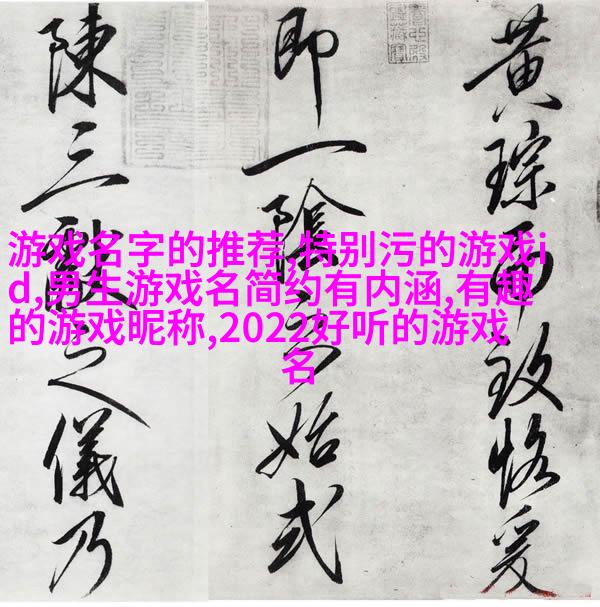 游戏名字的推荐,特别污的游戏i
d,男生游戏名简约有内涵,有趣
的游戏昵称,2022好听的游戏
名
黄琮而致恪爰
即一陰之始式
陳三獻之儀乃